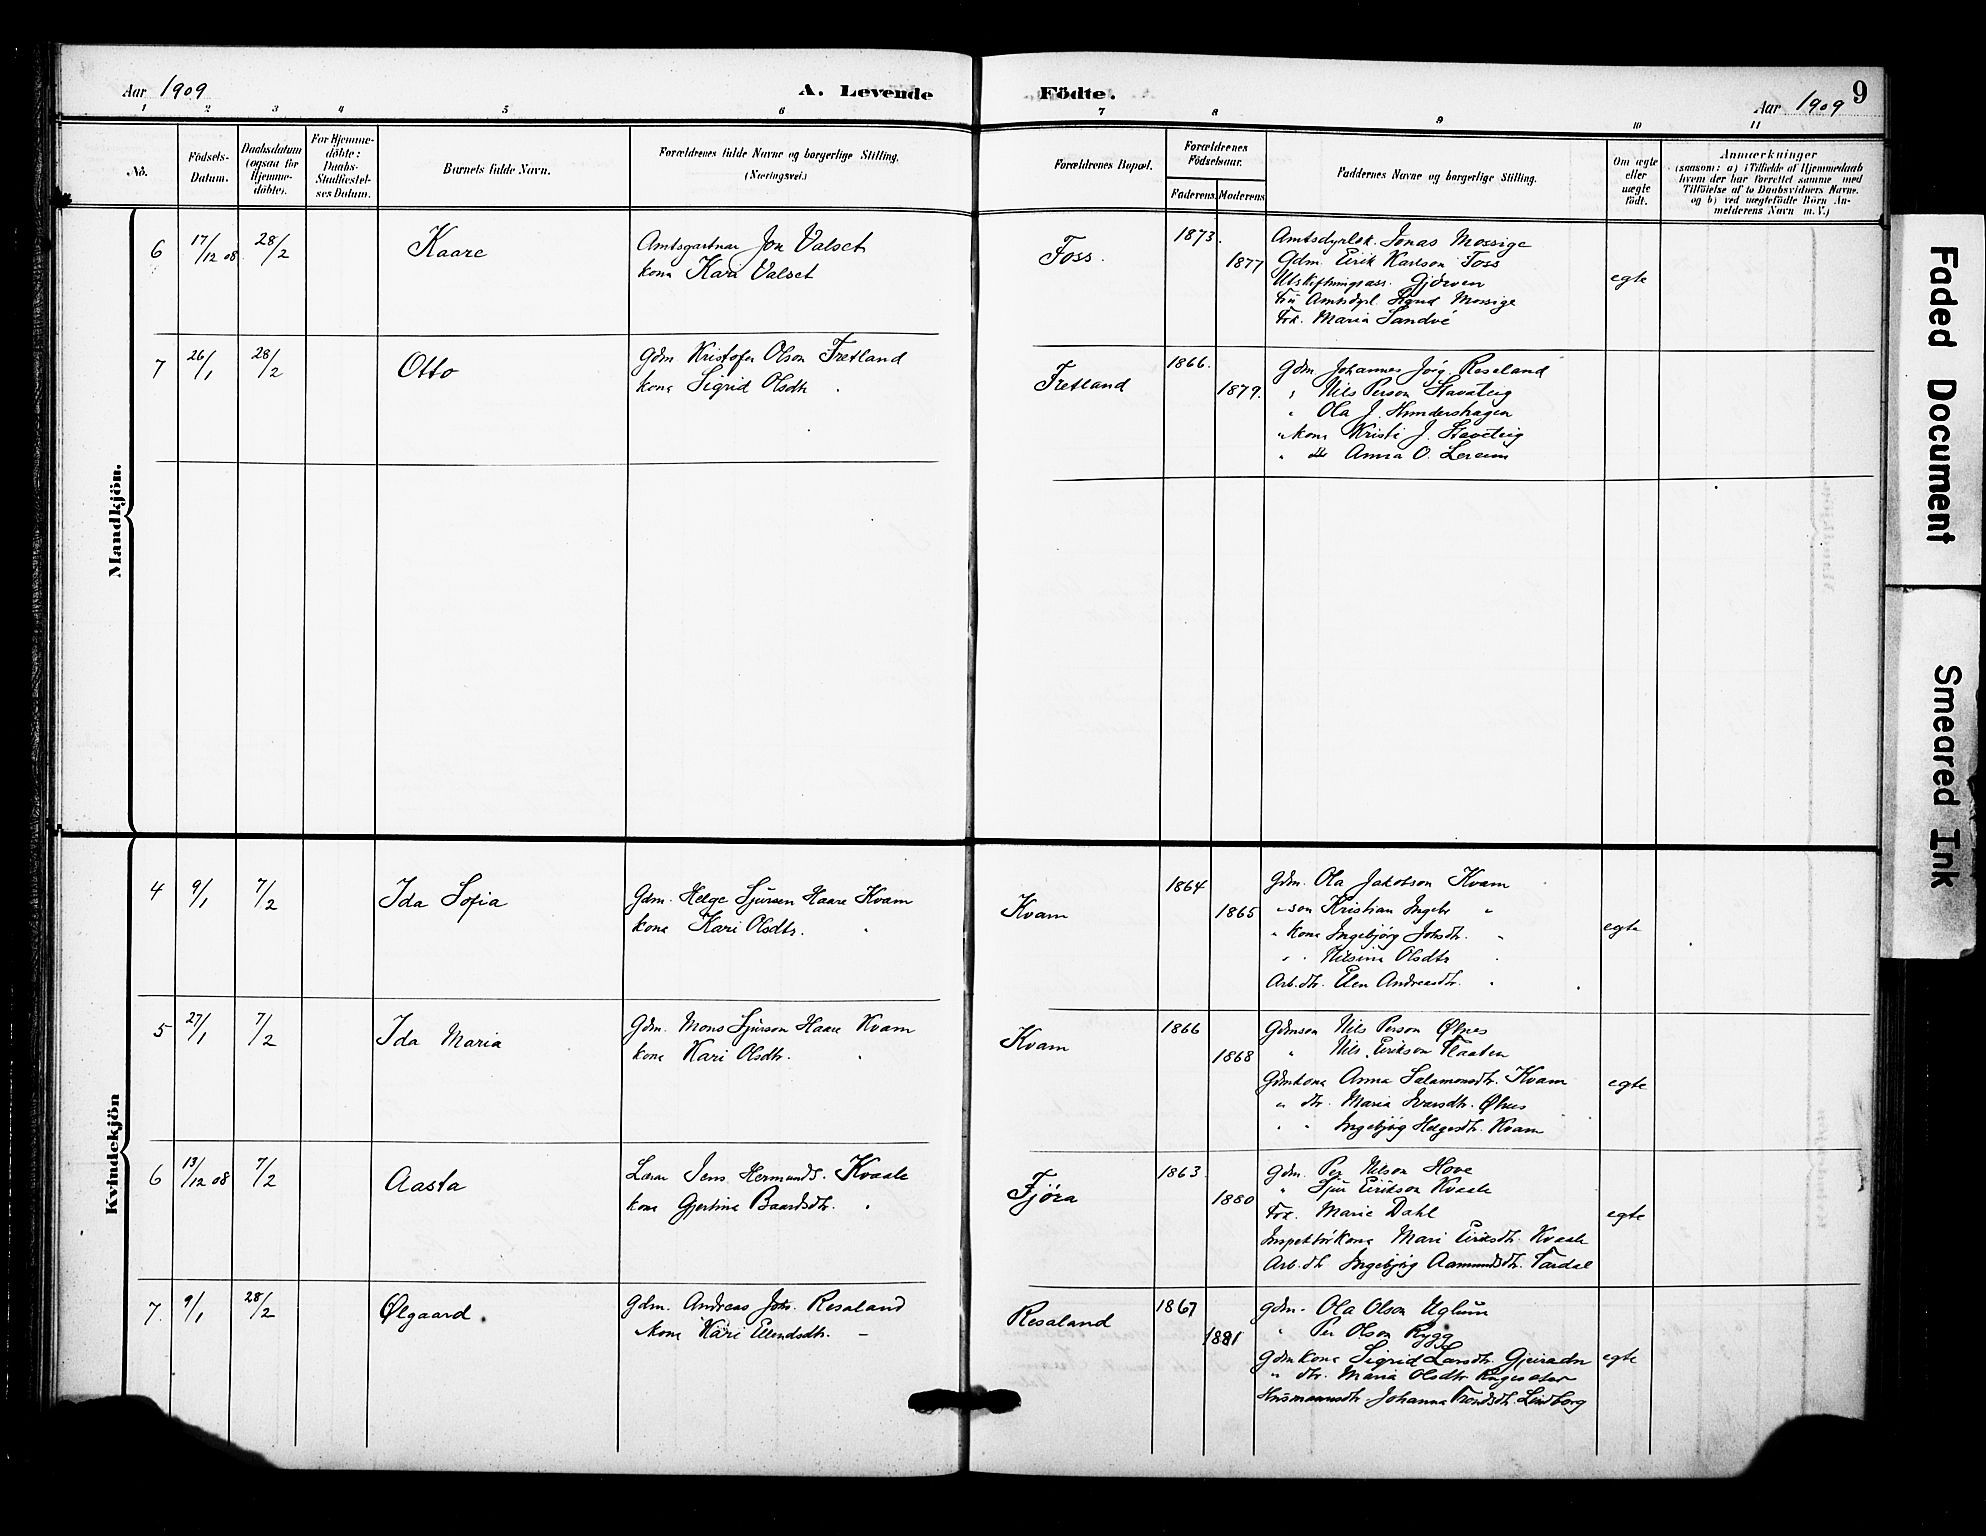 Aar 1909
A. Levende
Födte.
Aar 1909
9
1 2 3 4 5 6 7 8 9 10 11
No.
Födsels-
Datum.
Daabsdatum
(ogsaa for
Hjemme-
döbte).
For Hjemme-
döbte:
Daabs-
Stadfæstel-
ses Datum.
Barnets fulde Navn.
Forældrenes fulde Navne og borgerlige Stilling.
(Næringsvei.)
Forældrenes Bopæl.
Forældrenes
Födselsaar.
Faderens.
Moderens.
Faddernes Navne og borgerlige Stilling.
Om ægte
eller
uægte
födt.
Anmærkninger
(saasom: a) i Tilfælde af Hjemmedaab
hvem der har forrettet samme med
Tilföielse af to Daabsvidners Navne.
og b) ved uægtefödte Börn An-
melderens Navn m. V.)
Mandkjön.
6 17/12 08 28/2 Kaare
Amtsgartnar Jon Valset
kona Kari Valset
Foss.
1873.
1877
Amtsdyrlæk. Jonas Mossige
Gdm. Eirik Karlson Foss
Utskiftningsass. Gjörven
Fru Amtsdyrl. Mossige
Frk. Maria Sandve
egte
7 26/1 28/2 Otto
Gdm Kristofer Olson Fretland
kona Sigrid Olsdtr
Fretland
1866.
1879.
Gdm Johannes Jörg. Roseland
" Nils Person Stavateig
" Ola J. Hundershagen
" kona Kristi J. Staveteig
" dtr Anna O. Lereim
Kvindekjön
4 9/1 7/2 Ida Sofia
Gdm. Helge Sjurson Haare Kvam
kona Kari Olsdtr. "
Kvam
1864
1865
Gdm. Ola Jakobson Kvam
" son Kristian Ingebr "
" kona Ingebjörg Johsdtr. "
" " Nilsina Olsdtr "
Arb.dtr. Elen Andreasdtr. "
egte
5 27/1 7/2 Ida Maria
Gdm. Mons Sjurson Haare Kvam
kona Kari Olsdtr. "
Kvam
1866
1868
Gdmson Nils Person Ølnes
" Nils Eirikson Flaaten
Gdmkona Anna Salamonsdtr. Kvam
" dtr. Maria Ivarsdtr. Ølnes
" " Ingebjörg Helgesdtr. Kvam
egte
6 13/12 08 7/2 Aasta
Lærar Jens Hermunds. Kvaale
kona Gjertina Baardsdtr. "
Fjöra
1863
1880
Gdm. Per Nilson Hove
" Sjur Eirikson Kvaale
Frk. Marie Dahl
Inspektörkona Mari Eiriksdtr. Kvaale
Arb.dtr Ingebjörg Aamundsdtr. Fardal
egte
7. 9/1 28/2 Ølgaard
Gdm. Andreas Johs. Rosaland
kona Kari Elendsdtr. –
Rosaland
1867
1881
Gdm. Ola Olson Uglum
" Per Olson Rygg
Gdmkona Sigrid Larsdtr.
" dtr. Maria Olsdtr
Husmannsdtr Johanna Trondsdtr. Lindborg
egte
Faded Document
Smeared Ink